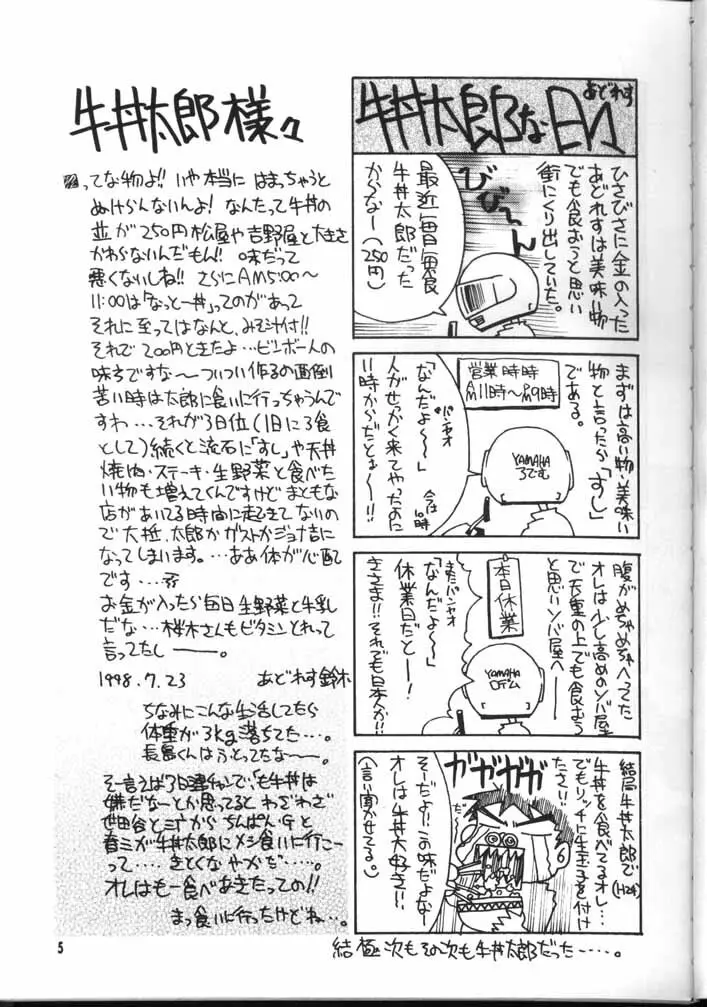 牛丼太郎な日々
あどれす
ひさびさに金の入った
あどれすは美味い物
でも食おうと思い
街にくり出していた。
びびーん
最近毎日毎食
牛丼太郎だった
からなー(250円)
まずは高い物・美味い
物と言ったら「すし」
である。
営業時間
AM11時〜PM9時
YAMAHA
「なんだよ〜〜」
人がせっかく来てやったのに
11時からだとぉ〜!!
今は10時
腹がめちゃめちゃへってた
オレは少し高めのソバ屋
で天重の上でも食おう
と思いソバ屋へ──
本日休業
YAMAHA
またバンッオ
「なんだよ〜〜」
休業日だと──!
きさま!!それでも日本人か!!
結局牛丼太郎で
牛丼を食べてるオレ…
でもリッチに生玉子を付け
たさ!!
ガガガガ
そーだよ!!この味だよな〜
オレは牛丼大好き!!
(言い聞かせてる。)
結極次もその次も牛丼太郎だった……。
牛丼太郎様々
ってな物よ!! いや本当に はまっちゃうと
ぬけらんないんよ! なんたって牛丼の
並が250円 松屋や吉野屋と大きさ
かわらないんだもん!! 味だって
悪くないしね!! さらにAM5:00〜
11:00は「なっとー丼」ってのがあって
それに至ってはなんと、みそ汁付!!
それで200円ときたよ…ビンボー人の
味方ですな〜 ついつい作るの面倒
苦い時は太郎に食いに行っちゃうんで
すわ…それが3日位(1日に3食
として)続くと流石に「すし」や天丼
焼肉・ステーキ・生野菜と食べた
い物も増えてくんですけどまともな
店があいてる時間に起きてないの
で大抵、太郎かガストかジョナ吉に
なってしまいます。…ああ体が心配
です…
お金が入ったら毎日生野菜と牛乳
だな…桜木さんもビタミンとれって
言ってたし───。
1998.7.23 あどれす鈴木
ちなみにこんな生活してたら
体重が3kg落ちてた…。
長島くんはふとってたな〜〜。
そー言うば3日連チャンで、も牛丼は
嫌だな〜とか思ってると わざわざ
世田谷と三から ちんぱん・Gと
春ミが牛丼太郎にメシ食いに行こー
って……きとくなやつだ……。
オレはもー食べあきたっての!!
まっ食いに行ったけどね…。
5